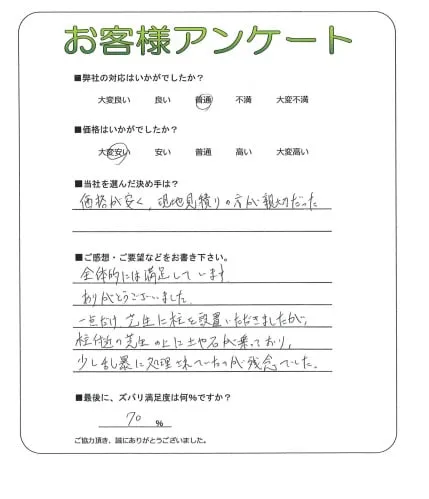 お客様アンケート
■弊社の対応はいかがでしたか?
大変良い 良い 普通 不満 大変不満
■価格はいかがでしたか?
大変安い 安い 普通 高い 大変高い
■当社を選んだ決め手は?
価格が安く、現地見積りの方が親切だった
■ご感想・ご要望などをお書き下さい。
全体的には満足しています
ありがとうございました
一点だけ、芝生に柱を設置いただきましたが、
柱付近の芝生の上に土や石が乗っており、
少し乱暴に処理されていたのが残念でした。
■最後に、ズバリ満足度は何%ですか?
70 %
ご協力頂き、誠にありがとうございました。